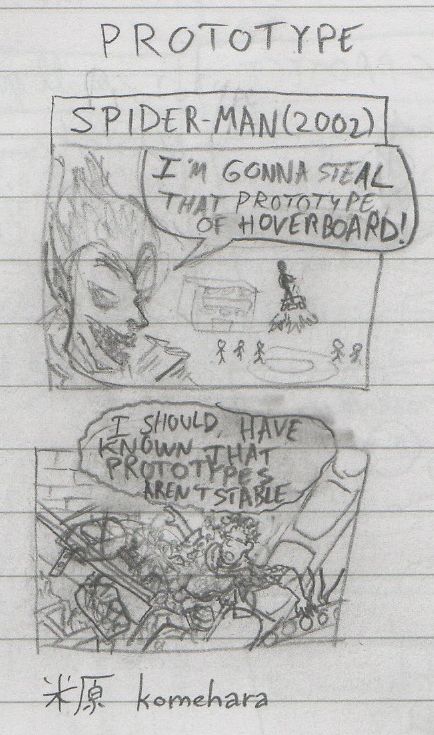 PROTOTYPE
SPIDER-MAN(2002)
I'M GONNA STEAL
THAT PROTOTYPE
OF HOVERBOARD!
I SHOULD HAVE
KNOWN THAT
PROTOTYPES
AREN'T STABLE
米原 komehara